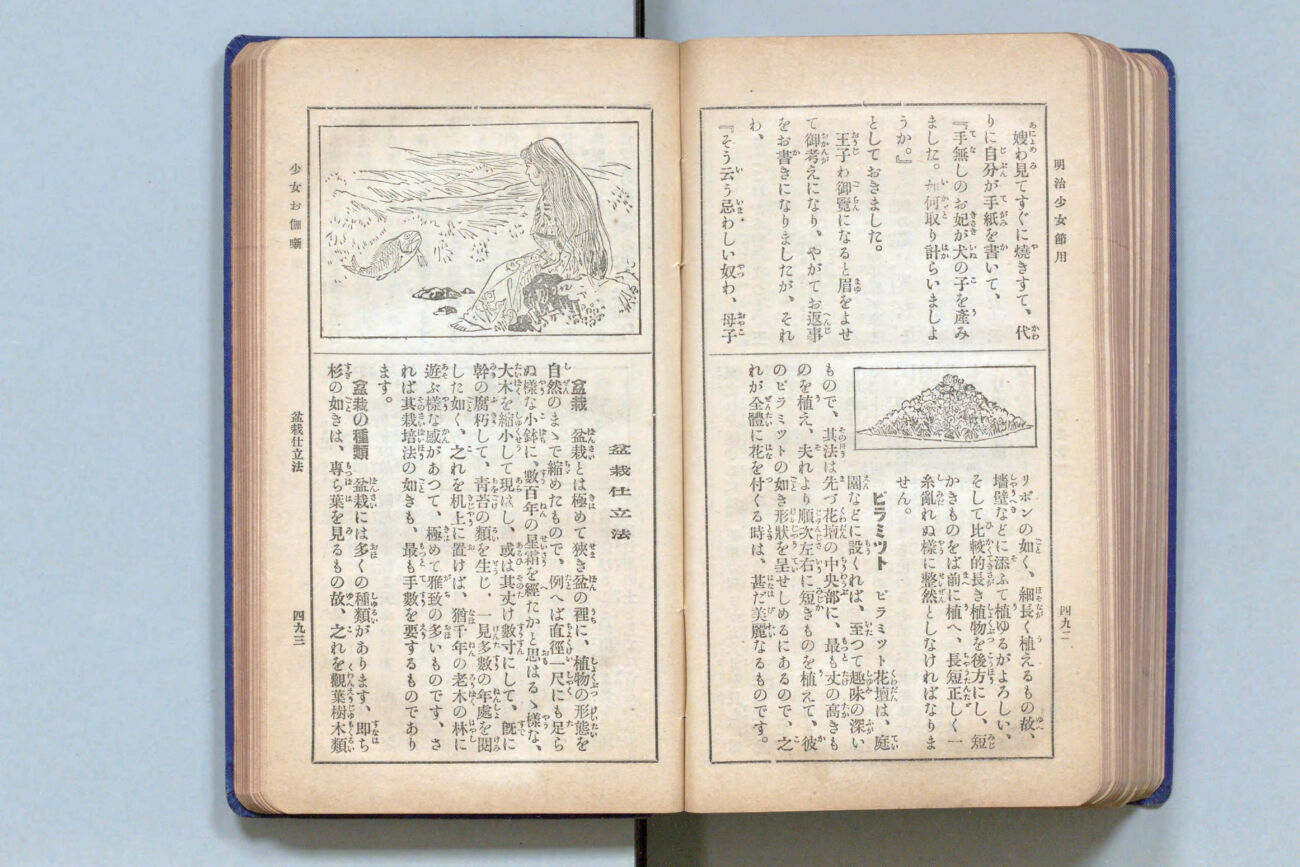 明治少女節用
四九二
嫂わ見てすぐに燒きすて、代
りに自分が手紙を書いて、
『手無しのお妃が犬の子を產み
ました。如何取り計らいましよ
うか。』
としておきました。
王子わ御覽になると眉をよせ
て御考えになり、やがてお返事
をお書きになりましたが、それ
わ、
『そう云う忌わしい奴わ、母子
リボンの如く、細長く植えるもの故、
墻壁などに添ふて植ゆるがよろしい、
そして比較的長き植物を後方にし、短
かきものをば前に植へ、長短正しく一
糸亂れぬ樣に整然としなければなりま
せん。
ピラミット ピラミット花壇は、庭
園などに設くれば、至つて趣味の深い
もので、其法は先づ花壇の中央部に、最も丈の高きも
のを植え、夫れより順次左右に短きものを植えて、彼
のピラミットの如き形狀を呈せしめるにあるので、之
れが全體に花を付くる時は、甚だ美麗なるものです。
少女お伽噺
盆栽仕立法
四九三
盆栽仕立法
盆栽 盆栽とは極めて狹き盆の裡に、植物の形態を
自然のまゝで縮めたもので、例へば直徑一尺にも足ら
ぬ樣な小鉢に、數百年の星霜を經たかと思はるゝ樣な、
大木を縮小して現はし、或は其丈け數寸にして、旣に
幹の腐朽して、靑苔の類を生じ、一見多數の年處を閱
した如く、之れを机上に置けば、猶千年の老木の林に
遊ぶ樣な感があつて、極めて雅致の多いものです、さ
れば其栽培法の如きも、最も手數を要するものであり
ます。
盆栽の種類 盆栽には多くの種類があります、卽ち
杉の如きは、專ら葉を見るもの故、之れを觀葉樹木類